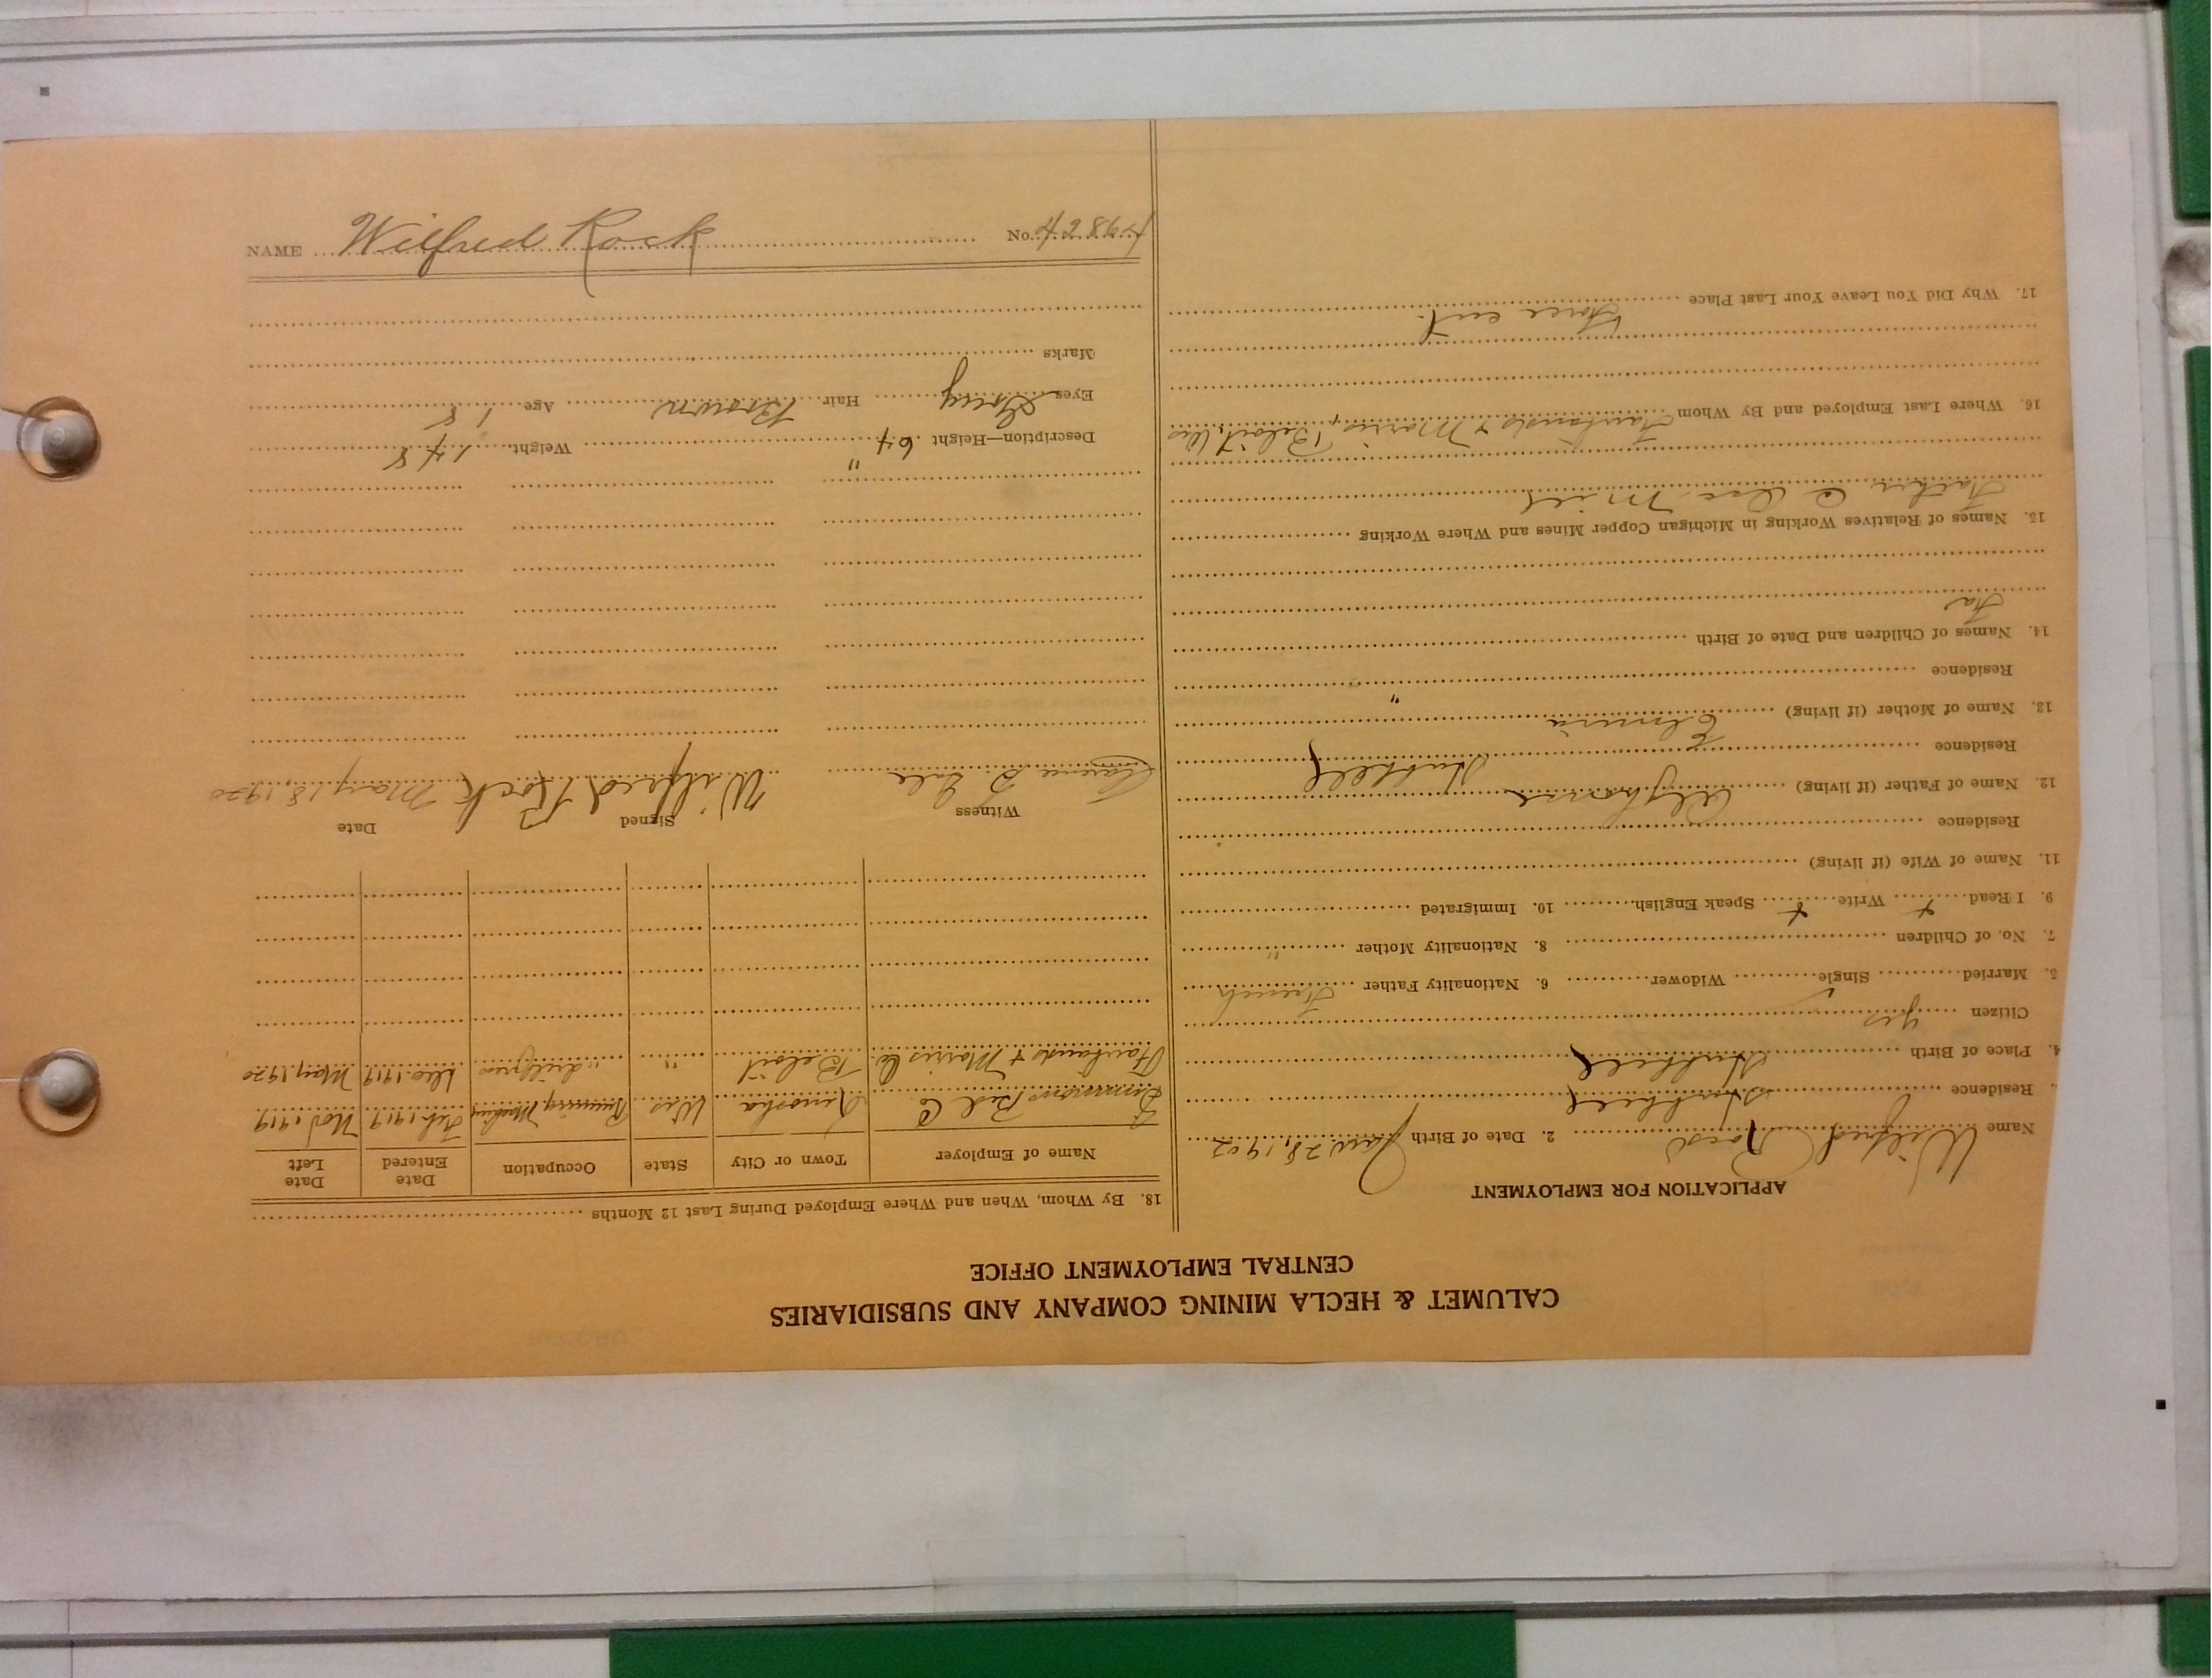 CALUMET & HECLA MINING COMPANY AND SUBSIDIARIES
CENTRAL EMPLOYMENT OFFICE
APPLICATION FOR EMPLOYMENT
Name Wilfred 2. Date of Birth Jan 28, 1902
Residence Hubbell
4. Place of Birth Hubbell
Citizen yes
5. Married Single ✓ Widower 6. Nationality Father French
7. No. of Children 8. Nationality Mother "
9. I Read x Write x Speak English 10. Immigrated
11. Name of Wife (if living)
Residence
12. Name of Father (if living) Alphonse
Residence Hubbell
13. Name of Mother (if living) Elmira
Residence "
14. Names of Children and Date of Birth
Fa
15. Names of Relatives Working in Michigan Copper Mines and Where Working
Father @ Mill
16. Where Last Employed and By Whom & Morris, Beloit, Wis
17. Why Did You Leave Your Last Place
Force cut.
18. By Whom, When and Where Employed During Last 12 Months
Name of Employer Town or City State Occupation Date Entered Date Left
Simmons Bed Co Kenosha Wis Running Machine Feb 1919 Nov 1919
& Morris Co Beloit " " Dec. 1919 May 1920
Witness Signed Date
Clarence Wilfred Rock May 18, 1920
Description—Height 64" Weight 148
Eyes Grey Hair Brown Age 18
Marks
NAME Wilfred Rock No. 42864